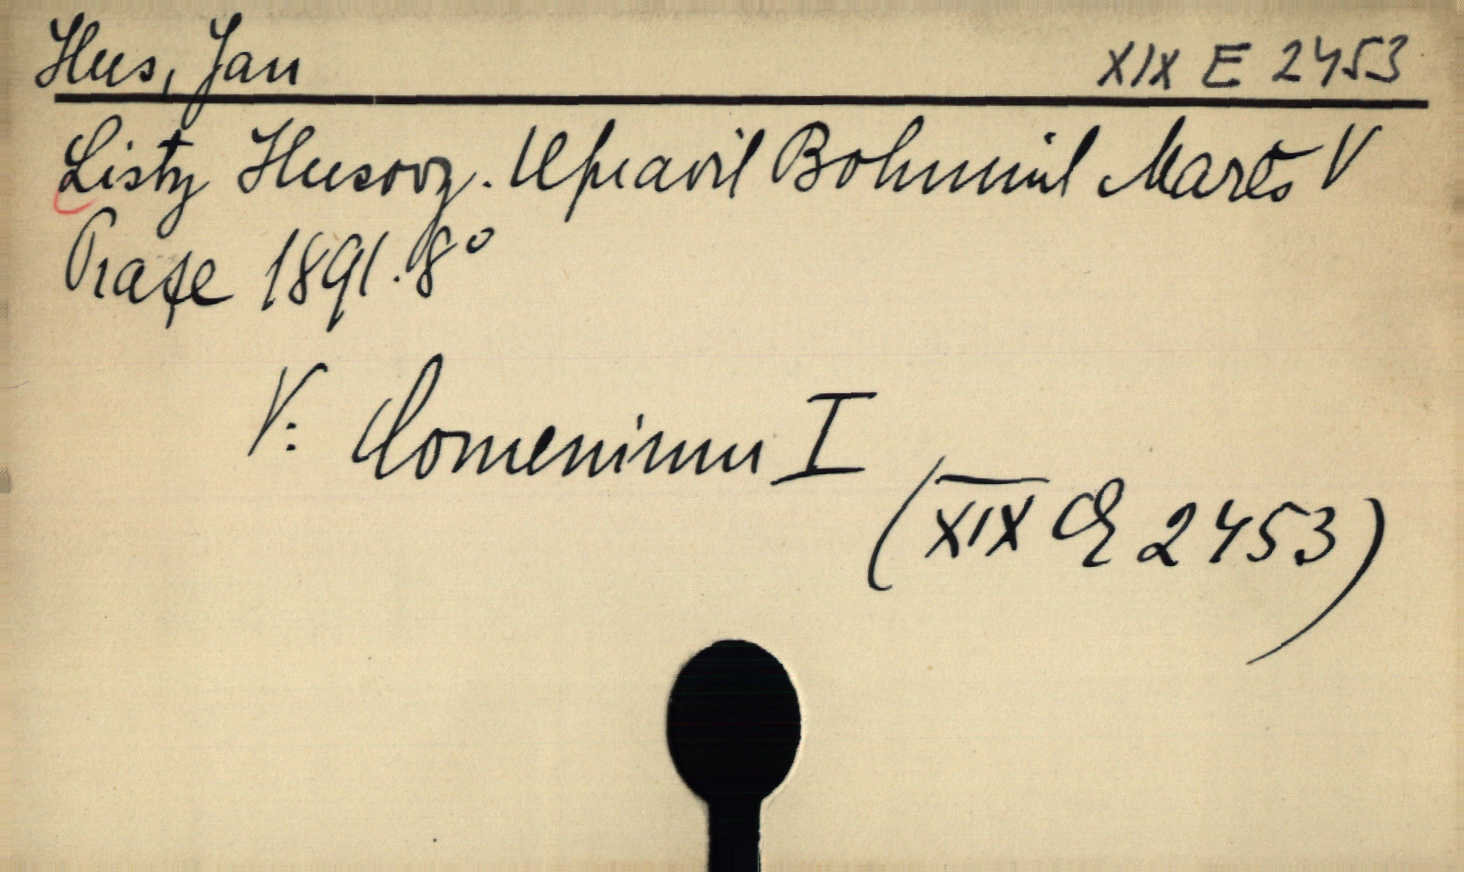 Hus, Jan XIX E 2453
Listy Husovy. Upravil Bohumil Mareš V
Praze 1891. 8°
V: Comenium I
(XIX E 2453)